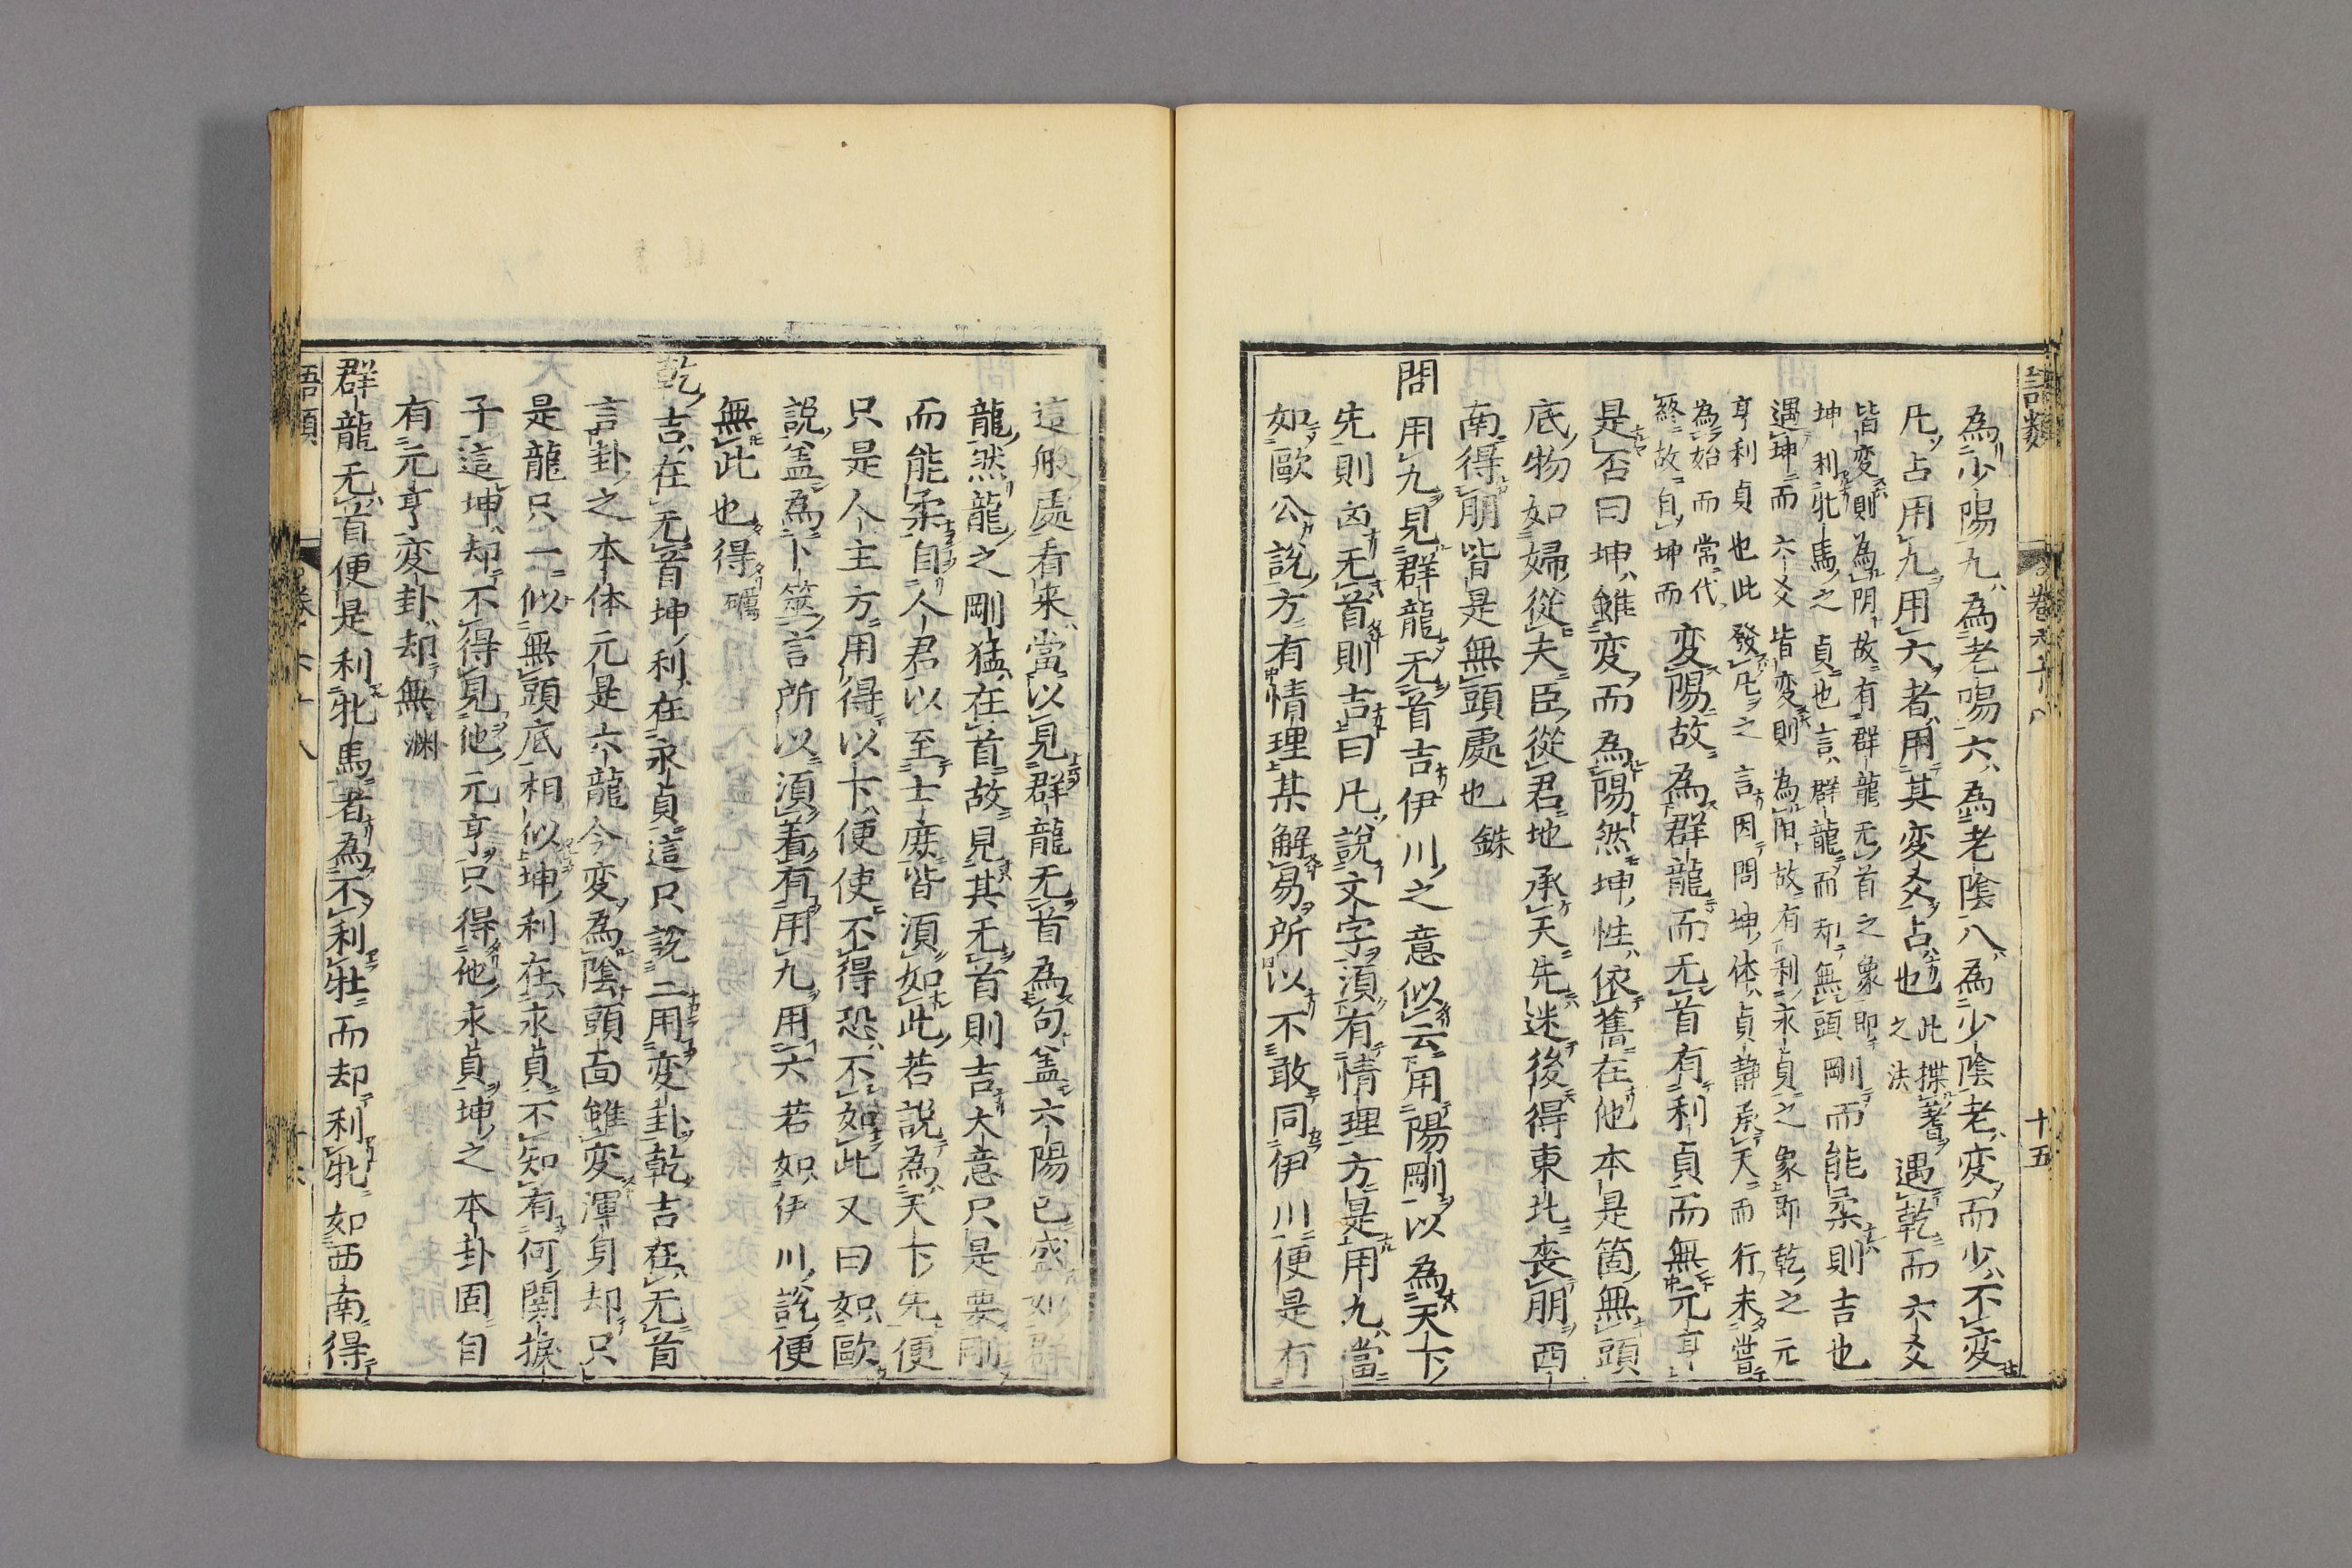 語類
十五
為少陽九為老陽六為老陰八為少陰老変而少不変
凡占用九用六者用其変爻占也此揲蓍之法遇乾而六爻
皆変則為陰故有群龍无首之象即
坤利牝馬之貞也言群龍而却無頭剛而能柔則吉也
遇坤而六爻皆変則為陽故有利永貞之象即乾之元
亨利貞也此發凡之言因問坤体貞静承天而行未嘗
為始而常代
終故自坤而変陽故為群龍而无首有利貞而無元亨
是否曰坤雖変而為陽然坤性依舊在他本是箇無頭
底物如婦從夫臣從君地承天先迷後得東北喪朋西
南得朋皆是無頭處也銖
問用九見群龍无首吉伊川之意似云用陽剛以為天下
先則凶无首則吉曰凡說文字須有情理方是用九當
如歐公說方有情理某解易所以不敢同伊川便是有
這般處看来當以見群龍无首為句盖六陽已盛如群
龍然龍之剛猛在首故見其无首則吉大意只是要剛
而能柔自人君以至士庶皆須如此若說為天下先便
只是人主方用得以下便使不得恐不如此又曰如歐
說盖為卜筮言所以須着有用九用六若如伊川說便
無此也得礪
乾吉在无首坤利在永貞這只說二用変卦乾吉在无首
言卦之本体元是六龍今変為陰頭面雖変渾身却只
是龍只一似無頭底相似坤利在永貞不知有何関捩
子這坤却不得見他元亨只得他永貞坤之本卦固自
有元亨変卦却無淵
群龍无首便是利牝馬者為不利牡而却利牝如西南得
語類